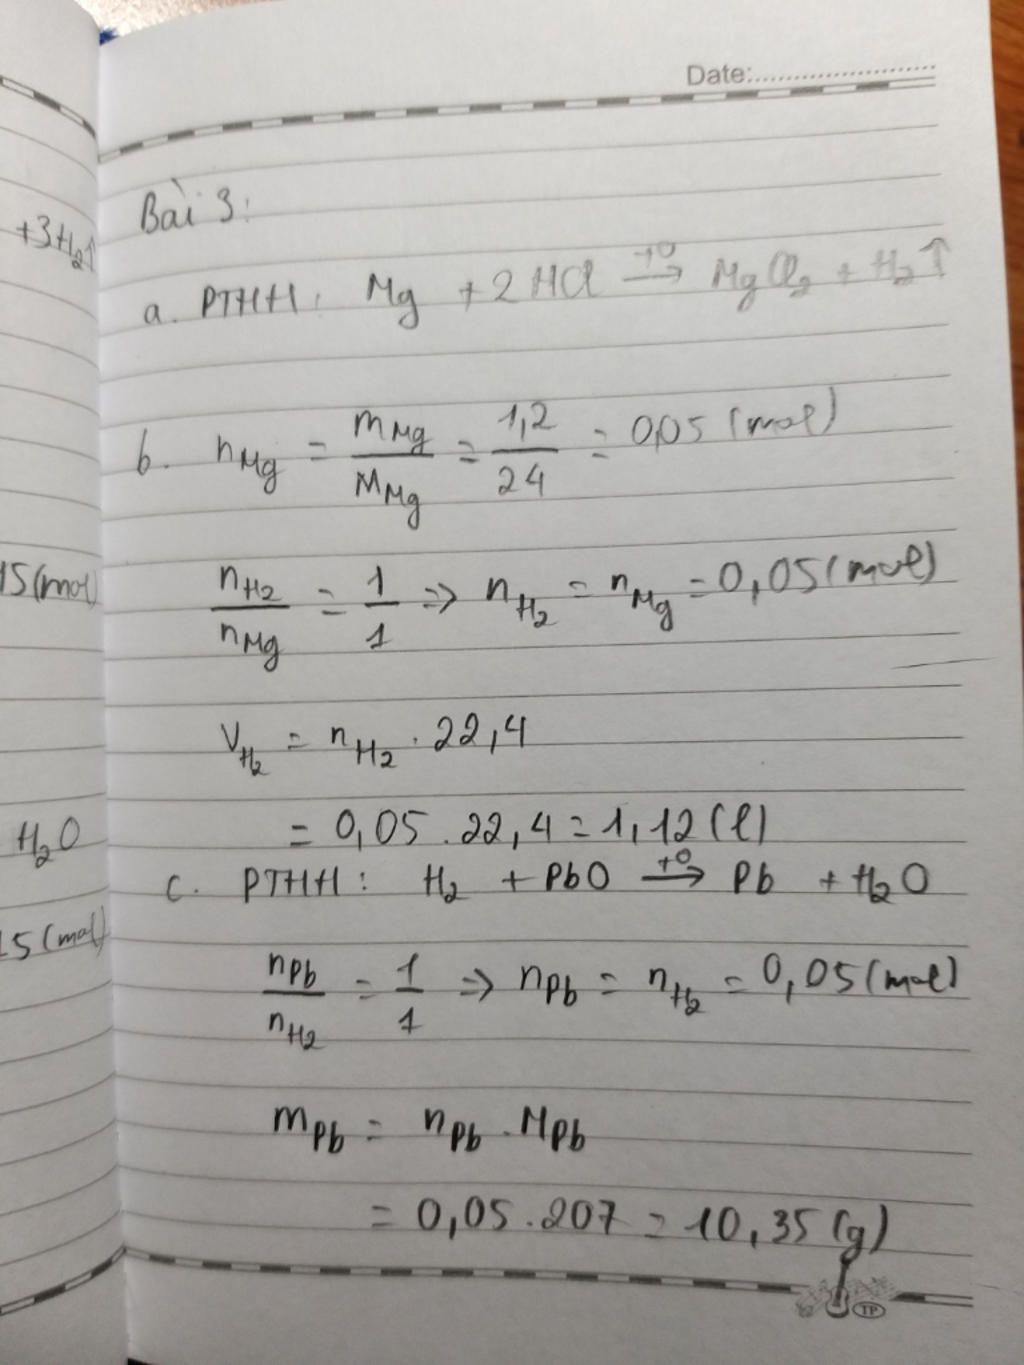 Date:
+3H₂↑
Bài 3:
a. PTHH: Mg + 2HCl →(t⁰) MgCl₂ + H₂↑
b. nMg = mMg/MMg = 1,2/24 = 0,05 (mol)
15 (mol)
nH₂/nMg = 1/1 => nH₂ = nMg = 0,05 (mol)
VH₂ = nH₂ . 22,4
H₂O
= 0,05 . 22,4 = 1,12 (l)
c. PTHH: H₂ + PbO →(t⁰) Pb + H₂O
15 (mol)
nPb/nH₂ = 1/1 => nPb = nH₂ = 0,05 (mol)
mPb = nPb . MPb
= 0,05 . 207 = 10,35 (g)
TP